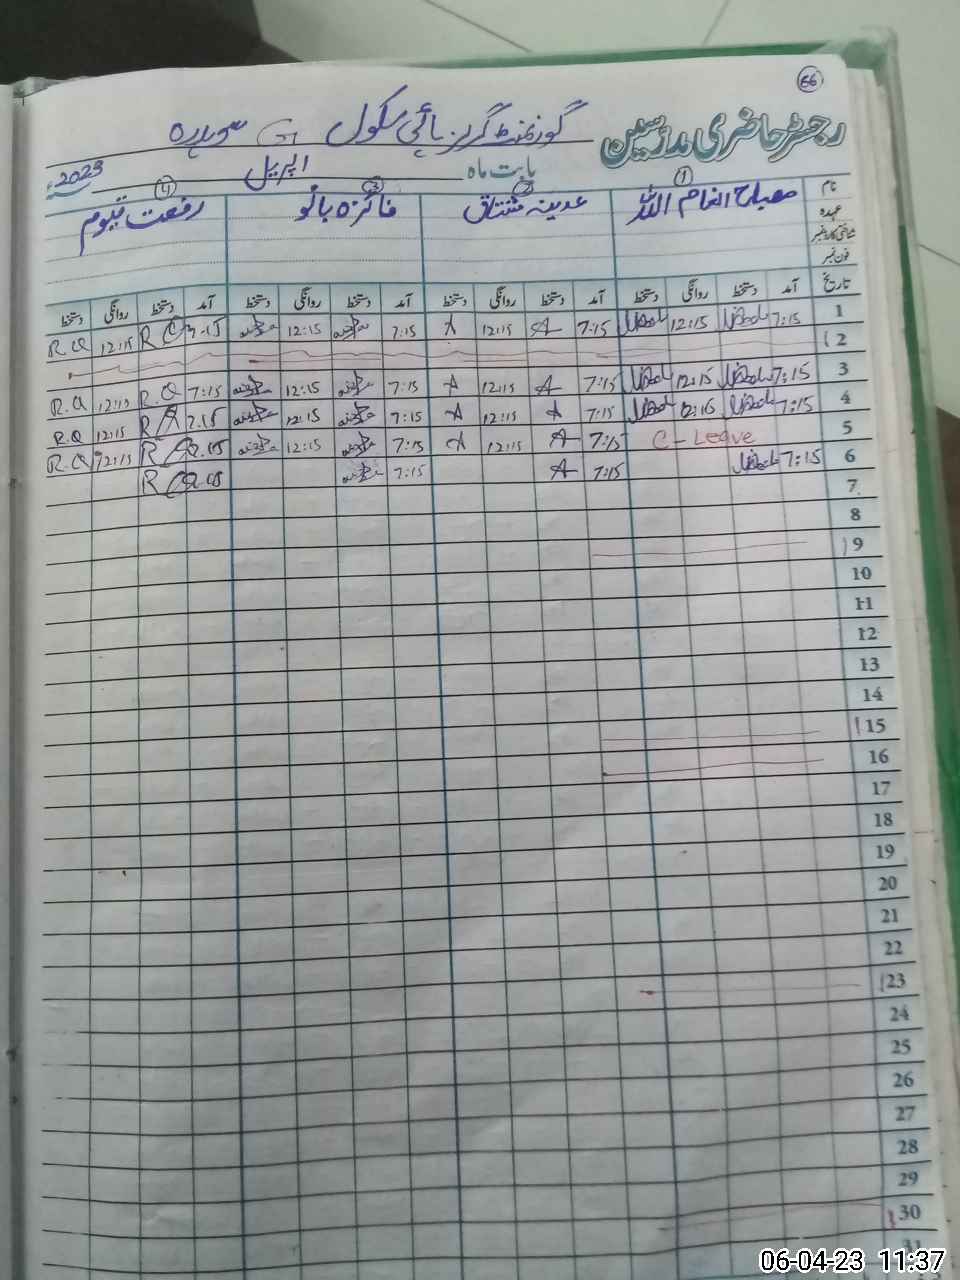 66
رجسٹر حاضری مدرسین گورنمنٹ گرلز ہائی سکول
بابت ماہ اپریل 2023ء
1 2 3 4
نام مصباح انعام اللہ عدینہ مشتاق فائزہ بانو رفعت قیوم
عہدہ
شناختی کارڈ نمبر
فون نمبر
تاریخ آمد دستخط روانگی دستخط آمد دستخط روانگی دستخط آمد دستخط روانگی دستخط آمد دستخط روانگی دستخط
1 7:15 12:15 7:15 A 12:15 A 7:15 12:15 7:15 R Q 12:15 R.Q
2
3 7:15 12:15 7:15 A 12:15 A 7:15 12:15 7:15 R.Q 12:15 R.Q
4 7:15 12:15 7:15 A 12:15 A 7:15 12:15 7:15 R 12:15 R.Q
5 C - Leave 7:15 A 12:15 A 7:15 12:15 R 12:15 R.Q
6 7:15 7:15 A 7:15 R
7
8
9
10
11
12
13
14
15
16
17
18
19
20
21
22
23
24
25
26
27
28
29
30
31
06-04-23 11:37